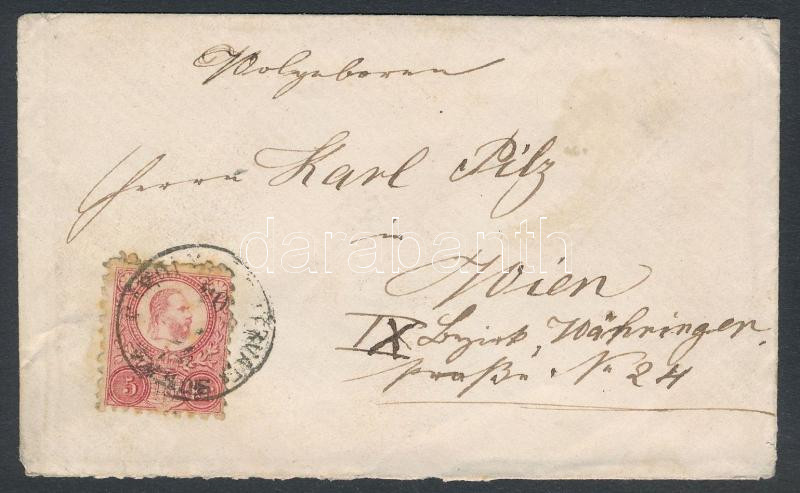 Wolgeboren
Herrn Karl Pilz
in
Wien
IX Bezirk, Währinger-
straße No 24
5
darabanth